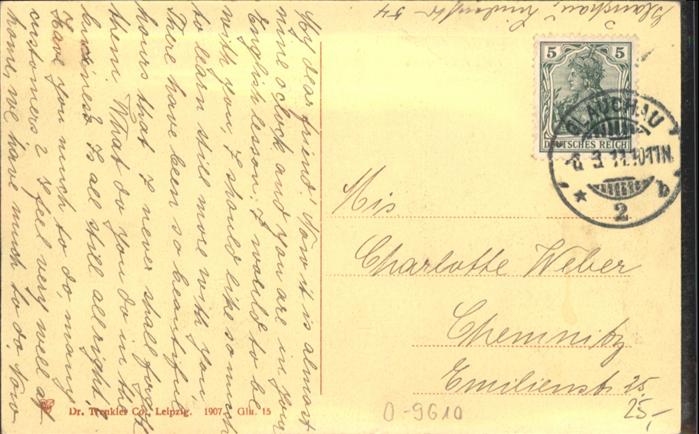 My dear friend! Now it is almost
nine o'clock and you are in your
English lesson. I would to be
with you, I should like so much
to learn still more with you.
There have been so beautiful
hours that I never shall forget
them. What do you do in the
business? Is all still all right?
Have you much to do, many
customers? I feel very well at
home, we have much to do, now
Glauchau, 54
5 5
DEUTSCHES REICH
GLAUCHAU
6. 3. 11. 10-11 N.
* 2 b
Mis
Charlotte Weber
Chemnitz
Emilienstr. 25.
Dr. Trenkler Co., Leipzig. 1907. Glu. 15
0-9610
25,-